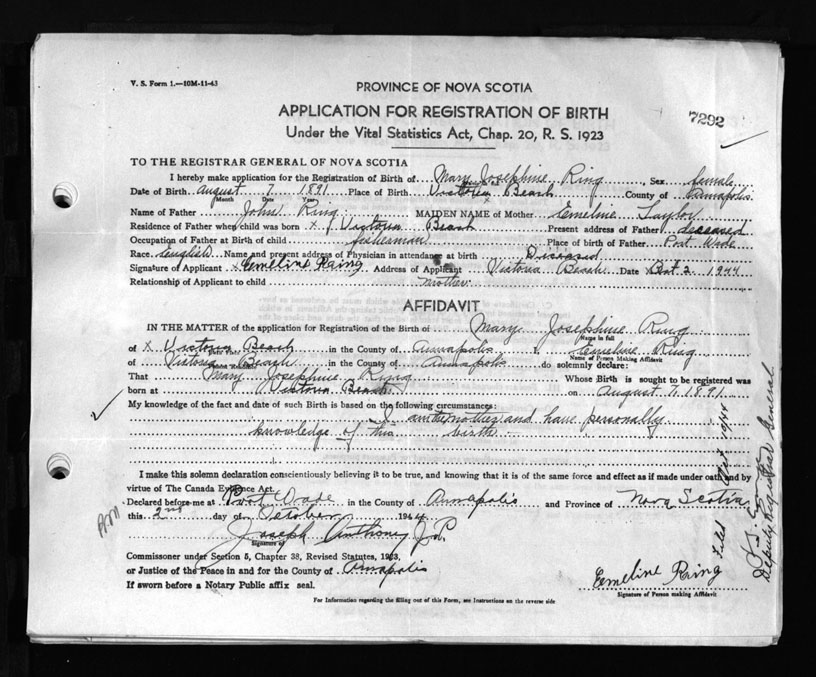 V. S. Form 1.—10M-11-43
PROVINCE OF NOVA SCOTIA
APPLICATION FOR REGISTRATION OF BIRTH
7292
Under the Vital Statistics Act, Chap. 20, R. S. 1923
TO THE REGISTRAR GENERAL OF NOVA SCOTIA
I hereby make application for the Registration of Birth of Mary Josephine Ring, Sex female
Date of Birth August 7 1891 Place of Birth Victoria Beach County of Annapolis
Month Date Year
Name of Father John Ring MAIDEN NAME of Mother Emeline Taylor
Residence of Father when child was born x Victoria Beach Present address of Father deceased
Occupation of Father at Birth of child fisherman Place of birth of Father Port Wade
Race english Name and present address of Physician in attendance at birth Diseased
Signature of Applicant x Emeline Ring Address of Applicant Victoria Beach Date 2 1944
Relationship of Applicant to child mother
AFFIDAVIT
IN THE MATTER of the application for Registration of the Birth of Mary Josephine Ring
Name in full
of x Victoria Beach in the County of Annapolis I, Emeline Ring
Name of Person Making Affidavit
of Victoria Beach in the County of Annapolis do solemnly declare:
That Mary Josephine Ring Whose Birth is sought to be registered was
born at Victoria Beach on August 7, 1891
My knowledge of the fact and date of such Birth is based on the following circumstances:
I am the mother and have personally
knowledge of this birth
I make this solemn declaration conscientiously believing it to be true, and knowing that it is of the same force and effect as if made under oath and by
virtue of The Canada Evidence Act.
Declared before me at Port Wade in the County of Annapolis and Province of Nova Scotia
this 2nd day of October 1944
Joseph Anthony J.P.
Signature of
Commissioner under Section 5, Chapter 38, Revised Statutes, 1923,
or Justice of the Peace in and for the County of Annapolis
If sworn before a Notary Public affix seal.
Emeline Ring
Signature of Person making Affidavit
For Information regarding the filling out of this Form, see Instructions on the reverse side
Filed Oct 19/44
Deputy Registrar General